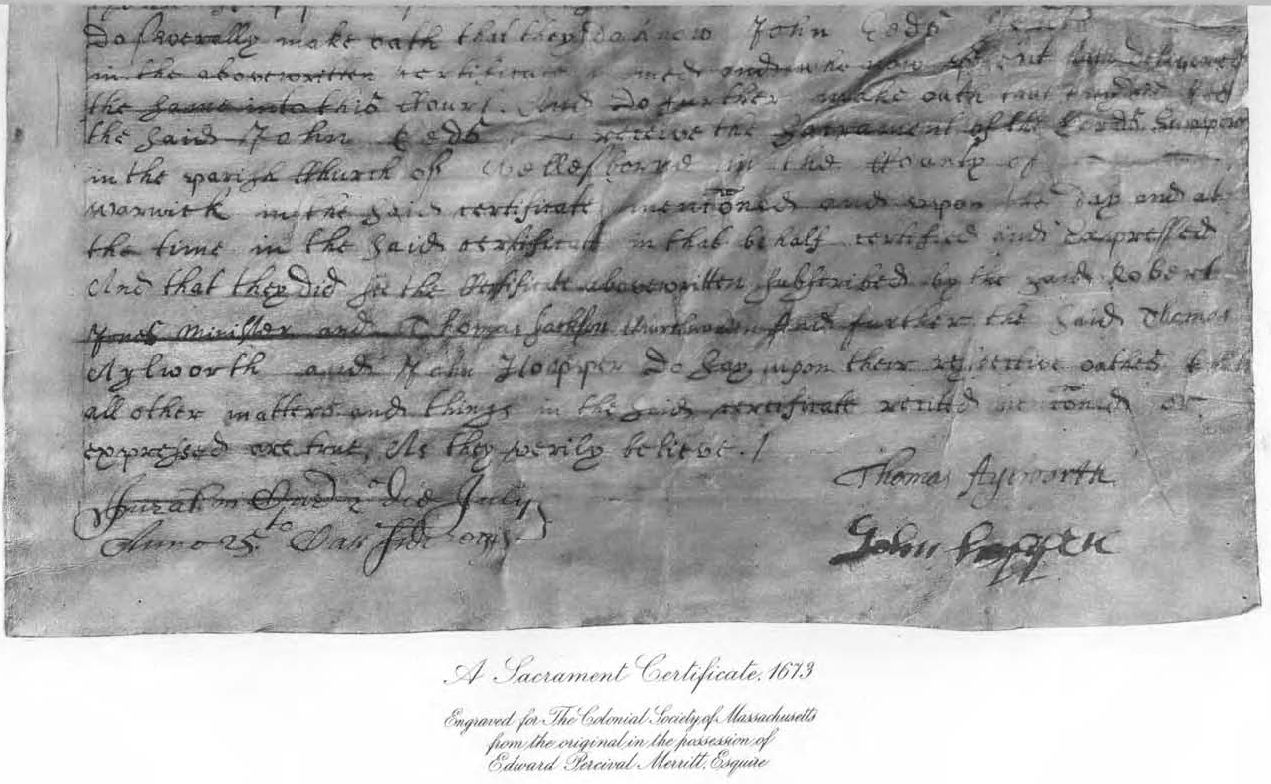 Do severally make oath that they do know John Eeds
in the abovewritten certificate named and who now present hath delivered
the same into this Court. And Do further make oath that they did see
the said John Eeds receive the Sacrament of the Lords Supper
in the parish Church of Wellesborne in the County of
Warwick in the said certificate mencõned and upon the day and at
the time in the said certificate in that behalf certified and expressed
And that they did see the Certificate abovewritten subscribed by the said Robert
Jones Minister and Thomas Jackson Churchwarden And further the said Thomas
Aylworth and John Hopper Do say upon their respective oathes that
all other matters and things in the said certificate recited mencõned or
expressed are true, As they verily believe ./
Thomas Aylworth
Jurat in Cur 2 Die July
Anno 25to Car Scdi
John hopper
A Sacrament Certificate, 1673
Engraved for The Colonial Society of Massachusetts
from the original in the possession of
Edward Percival Merritt, Esquire